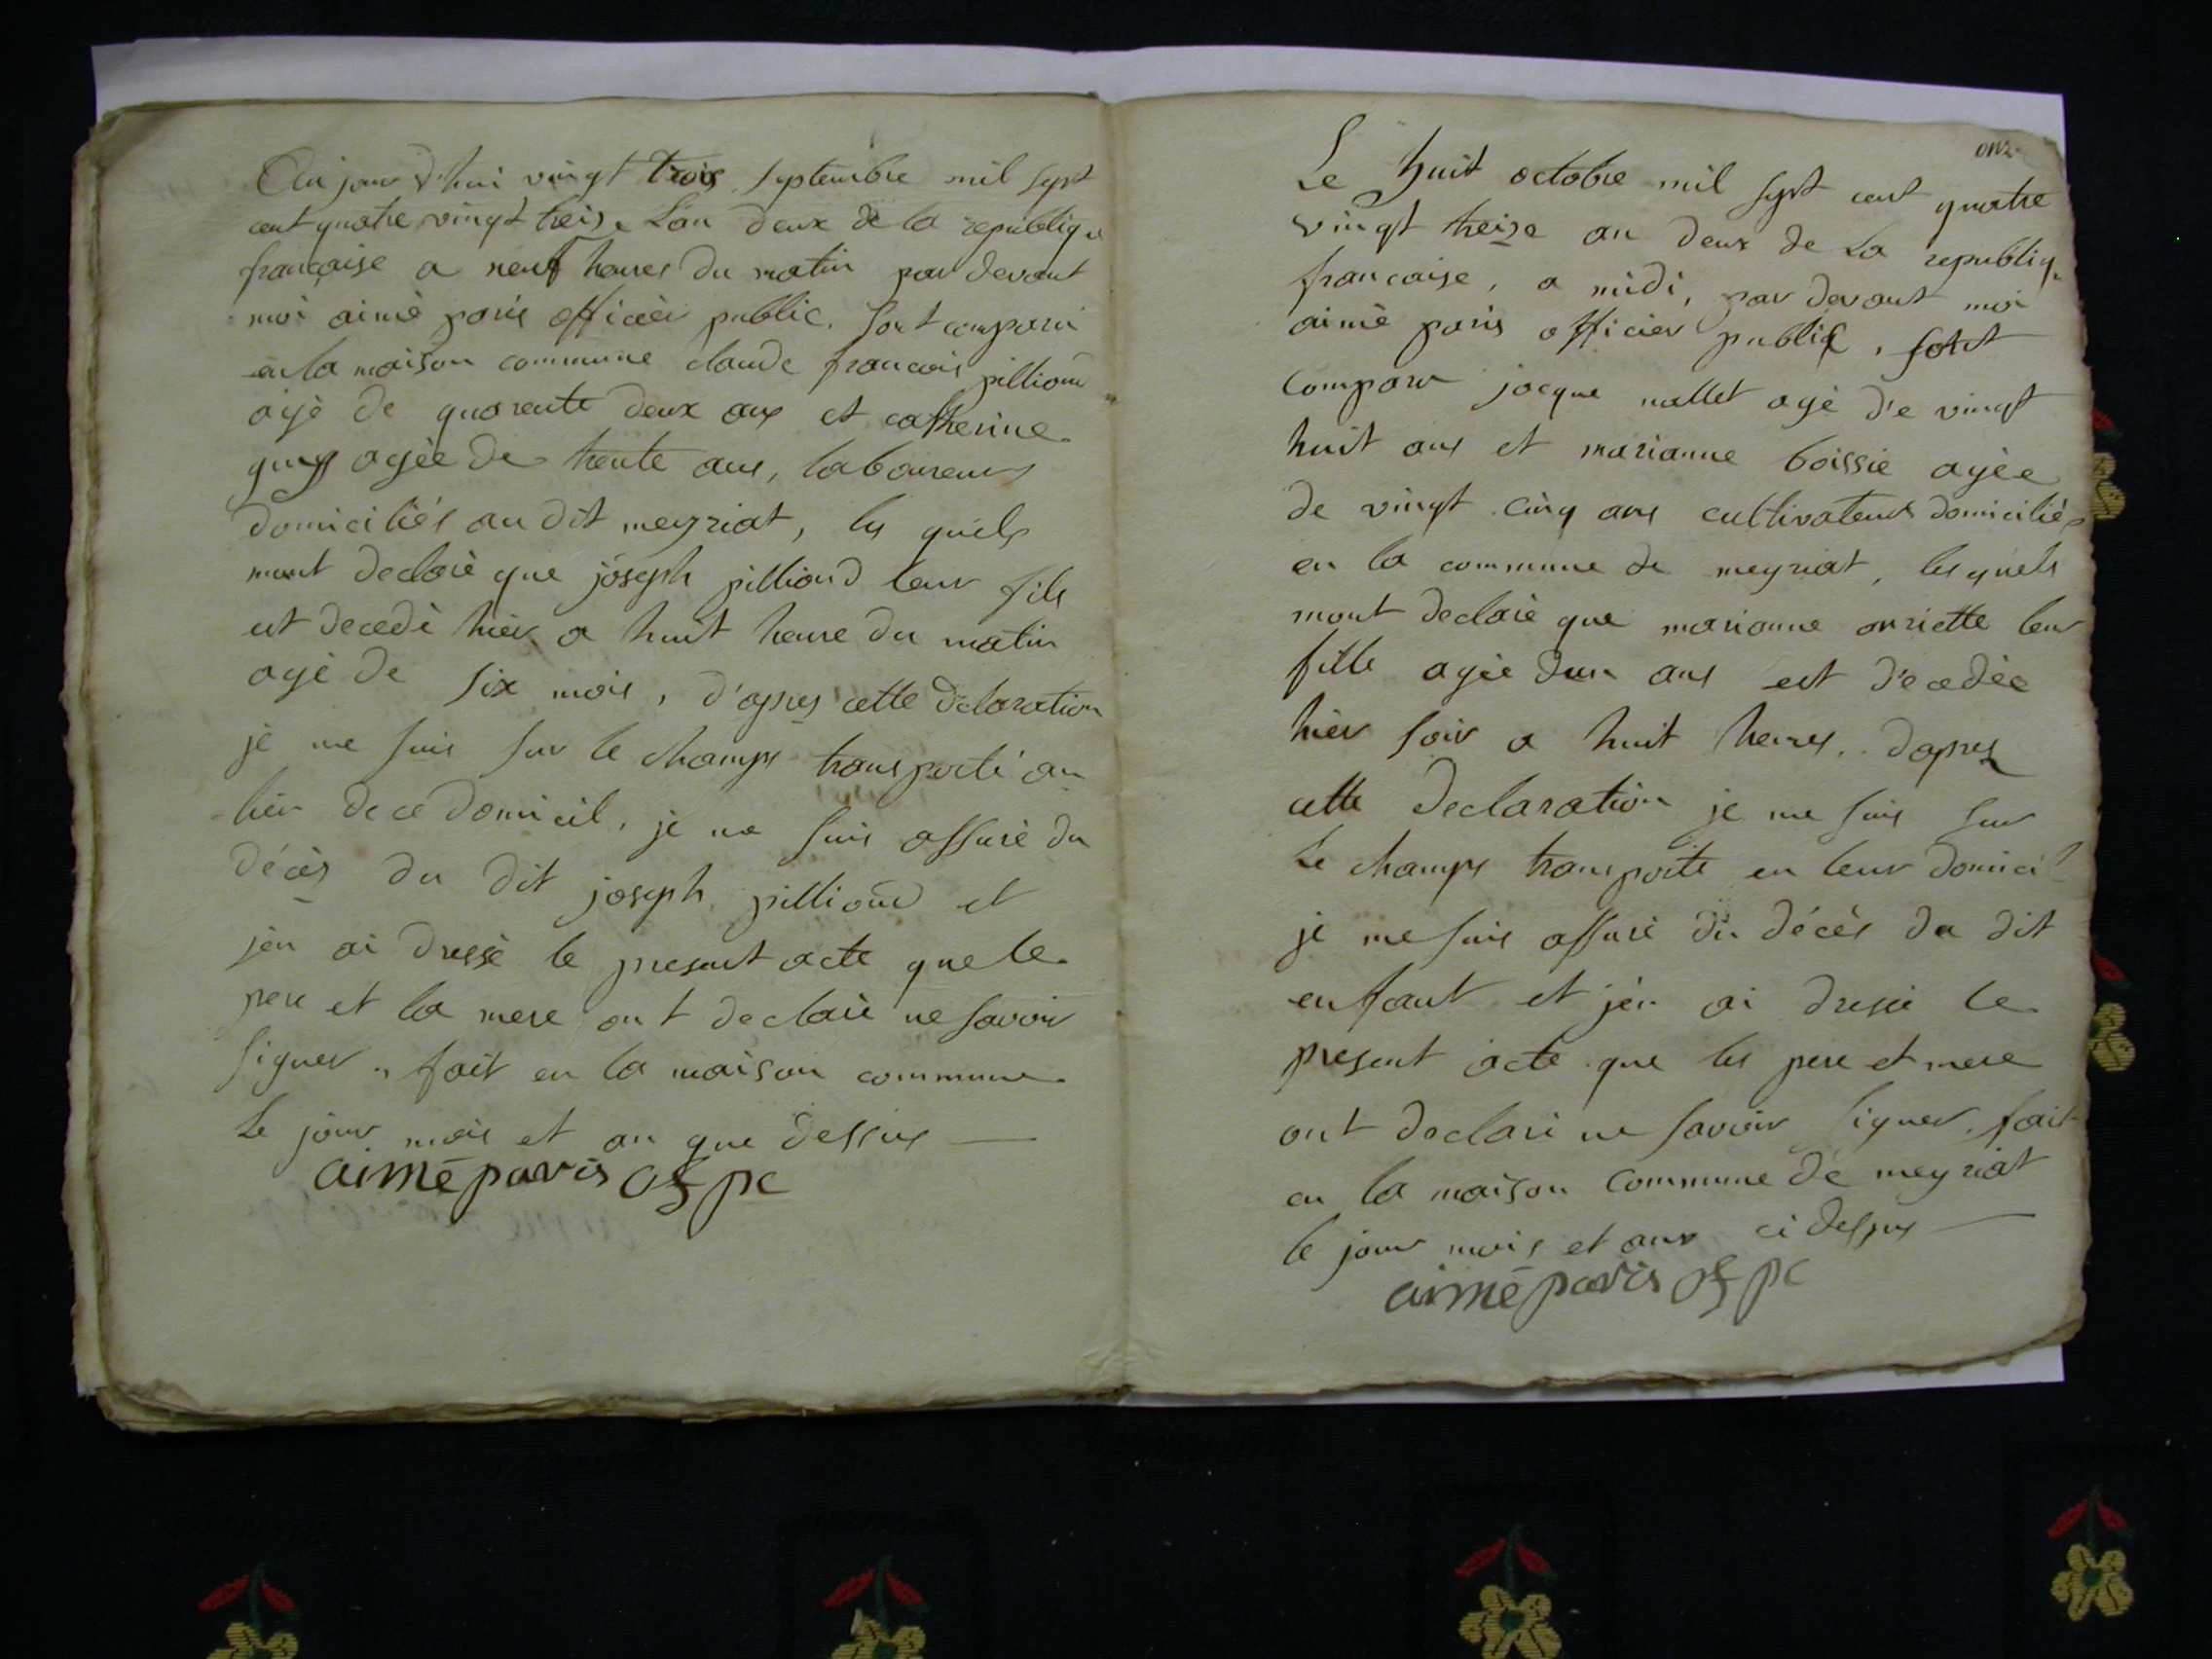 Au jour d'hui vingt trois septembre mil sept
cent quatre vingt treise L'an deux de la republique
française a neuf heures du matin par devant
moi aimé paris officièr public. sont comparu
en la maison commune claude francois pilliond
agé de quarente deux ans et catherine
agée de trente ans, laboureurs
domiciliés au dit meyriat, les quels
mont declaré que joseph pilliond leur fils
est decedé hièr a huit heure du matin
agé de six mois, d'apres cette declaration
je me suis sur le champs transporté au
lieu de ce domicil, je me suis assuré du
décès du dit joseph pilliond et
jen ai dressé le present acte que le
pere et la mere ont declaré ne savoir
signer, fait en la maison commune
Le jour mois et an que dessus
aimé paris of pc
onz
Le huit octobre mil sept cent quatre
vingt treize an deux de La republiq
francaise, a midi, par devant moi
aimé paris officier public, sont
comparu jacque mallet agé de vingt
huit ans et marianne boissie agée
de vingt cinq ans cultivateurs domiciliés
en la commune de meyriat, lesquels
mont declaré que marianne anriette leur
fille agée dun ans est decedée
hièr soir a huit heures. dapres
cette declaration je me suis sur
Le champs transporté en leur domicil
je me suis assuré du décès du dit
enfant et jén ai dressé le
present acte que les pere et mere
ont declaré ne savoir signer. fait
en la maison commune de meyriat
le jour mois et ans ci dessus
aimé paris of pc